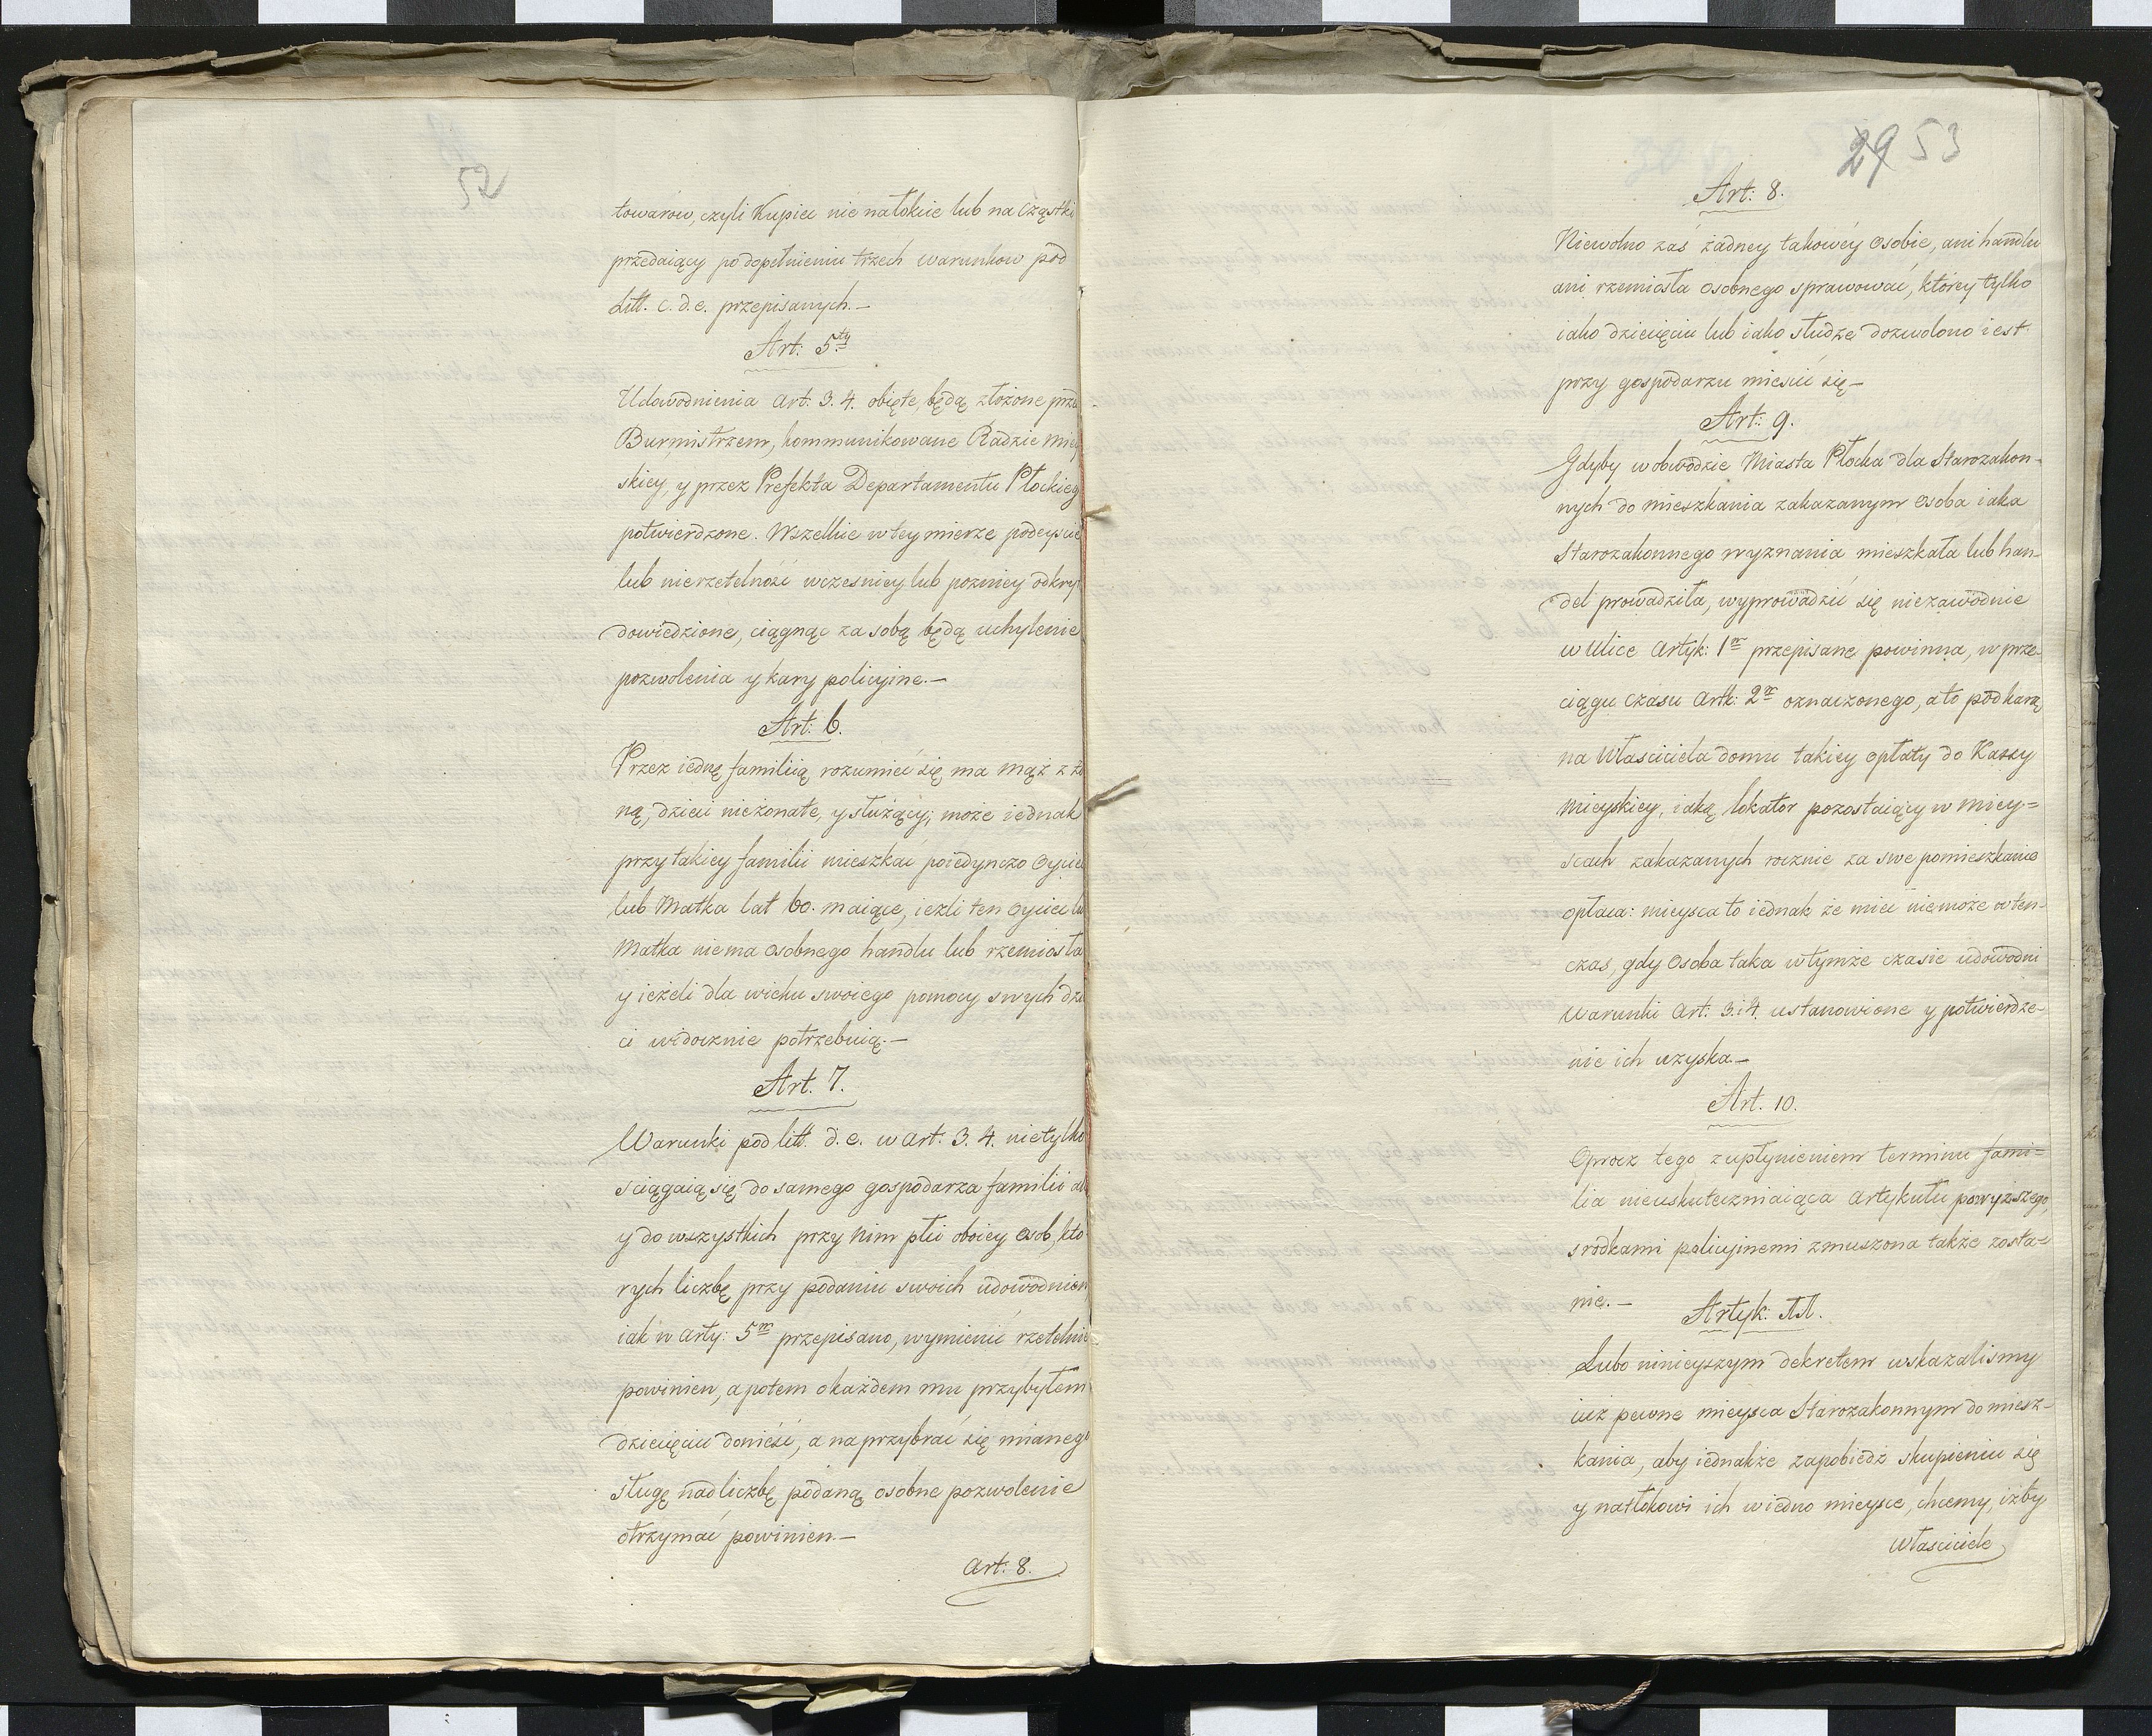 52
towarow, czyli Kupiec nie na łokcie lub na Cząstki
przedaiący po dopełnieniu trzech warunkow pod
Litt. c. d. e. przepisanych.—
Art: 5ty
Udowodnienia Art. 3. 4. obięte, będą złożone prze
Burmistrzem, kommunikowane Radzie Miey
skiey, y przez Prefekta Departamentu Płockieg
potwierdzone. Wszelkie w tey mierze podeyscie
lub nierzetelność wczesniey lub pozniey odkry
dowiedzione, ciągnąc za sobą będą uchylenie
pozwolenia y kary policyine.—
Art: 6.
Przez iedną familiią rozumieć się ma Mąż z żo
ną, dzieci nieżonate, y służący; może iednak
przy takiey familii mieszkać poiedynczo Oyciec
lub Matka lat 60. maiące, iezli ten Oyciec lu
Matka niema osobnego handlu lub rzemiosła
y ieżeli dla wieku swoiego pomocy swych dzi
ci widocznie potrzebuią.—
Art. 7.
Warunki pod litt. d. e. w Art. 3. 4. nietylko
sciągaią się do samego gospodarza familii al
y do wszystkich przy nim płci oboiey Osob, kto
rych liczbę przy podaniu swoich udowodnien
iak w Arty: 5m przepisano, wymienić rzetelnie
powinien, a potem o każdem mu przybyłem
dziecięciu donieść, a na przybrać się mianego
sługę nad liczbę podaną osobne pozwolenie
otrzymać powinien.—
Art: 8.
29 53
Art: 8.
Niewolno zaś żadney takowéy osobie, ani handlu
ani rzemiosła osobnego sprawować, którey tylko
iako dziecięciu lub iako słudze dozwolono iest
przy gospodarzu mieścić się—
Art: 9.
Gdyby w obwodzie Miasta Płocka dla Starozakon-
nych do mieszkania zakazanym Osoba iaka
Starozakonnego wyznania mieszkała lub han-
del prowadziła, wyprowadzić się niezawodnie
w Ulice Artyk: 1m przepisane powinna, w prze-
ciągu czasu Artk: 2m oznaczonego, a to pod karą
na Własciciela domu takiey opłaty do Kassy
Mieyskiey, iaką lokator pozostaiący w miey=
scach zakazanych rocznie za swe pomieszkanie
opłaca: mieysca to iednak że mieć niemoże wten-
czas, gdy Osoba taka w tymże czasie udowodni
Warunki Art: 3. i 4. ustanowione y potwierdze-
nie ich uzyska.—
Art. 10.
Oprocz tego z upłynieniem terminu fami=
lia nieuskuteczniaiąca Artykułu powyższego,
srodkami policyinemi zmuszona także zosta=
nie.—
Artyk: 11.
Lubo ninieyszym dekretem wskazalismy
iuż pewne mieysca Starozakonnym do miesz-
kania, aby iednakże zapobiedz skupieniu się
y natłokowi ich w iedno mieysce, chcemy, iżby
Własciciele